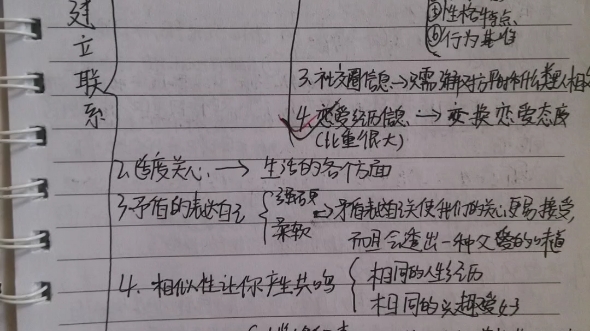 建立联系
③性格特点、
④行为其他
3.社交圈信息→只需了解对方平时和什么类型人相处
4.恋爱经历信息→变换恋爱态度
(比重很大)
2.适度关心→生活的各个方面
3.矛盾的表达自己
强硬
柔软
→矛盾表达自己会使我们的关心更易接受,
而且会透出一种父爱的味道
4.相似性让你产生共鸣
相同的人生经历
相同的兴趣爱好